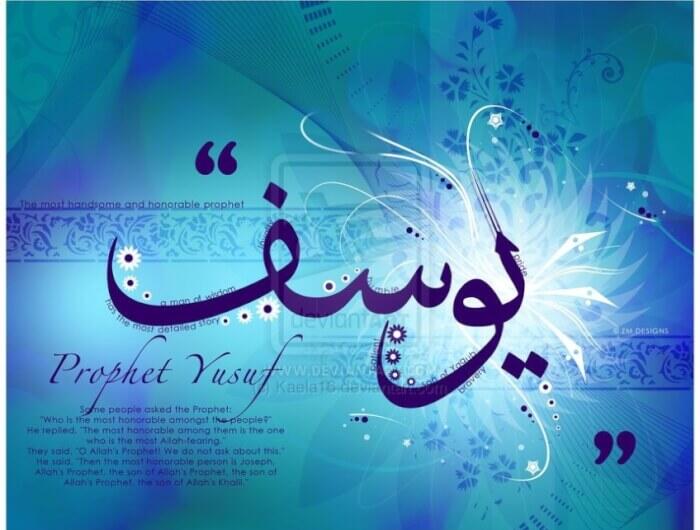 “
The most handsome and honorable prophet
يوسف
pride
a man of wisdom
has the most detailed story
son of Yaqub
bravery
© ZM DESIGNS
deviantART
WWW.DEVIANTART.COM
Kaela16.deviantart.com
Prophet Yusuf
Some people asked the Prophet:
"Who is the most honorable amongst the people?"
He replied, "The most honorable among them is the one
who is the most Allah-fearing."
They said, "O Allah's Prophet! We do not ask about this."
He said, "Then the most honorable person is Joseph,
Allah's Prophet, the son of Allah's Prophet, the son of
Allah's Prophet, the son of Allah's Khalil."
”